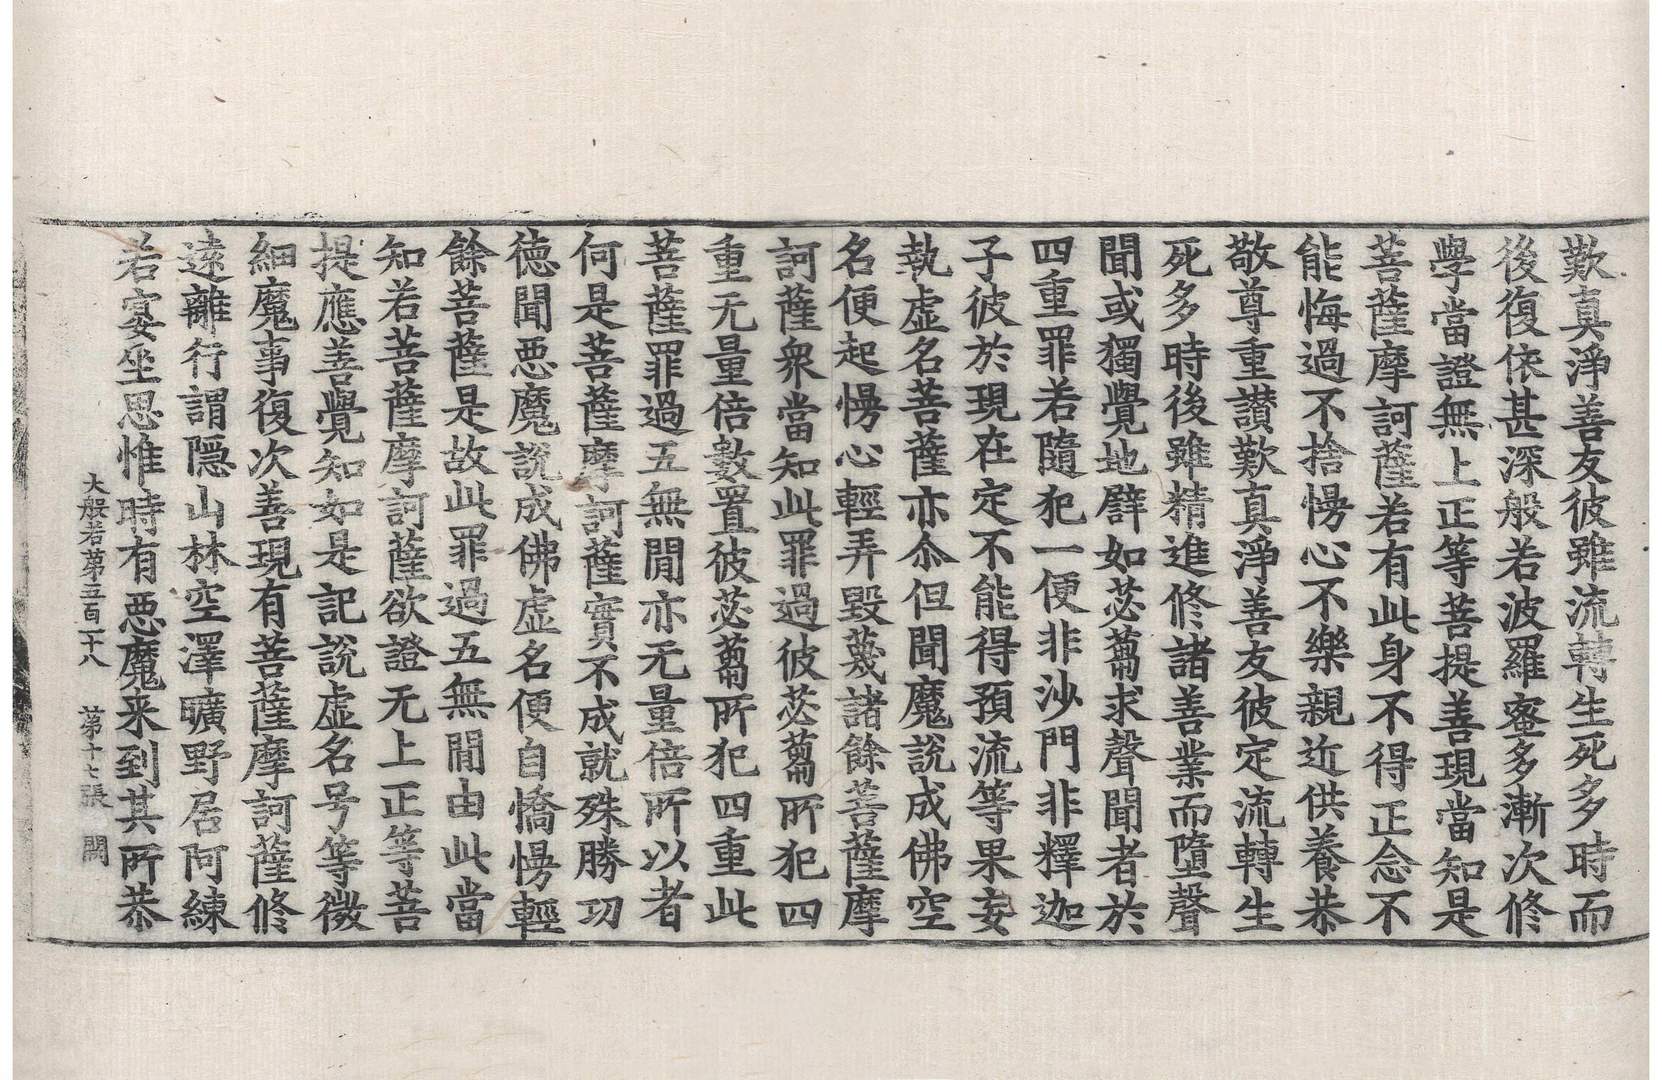 歎真淨善友彼雖流轉生死多時而
後復依甚深般若波羅蜜多漸次修
學當證無上正等菩提善現當知是
菩薩摩訶薩若有此身不得正念不
能悔過不捨慢心不樂親近供養恭
敬尊重讚歎真淨善友彼定流轉生
死多時後雖精進修諸善業而墮聲
聞或獨覺地譬如苾蒭求聲聞者於
四重罪若隨犯一便非沙門非釋迦
子彼於現在定不能得預流等果妄
執虛名菩薩亦尒但聞魔說成佛空
名便起慢心輕弄毀蔑諸餘菩薩摩
訶薩衆當知此罪過彼苾蒭所犯四
重无量倍數置彼苾蒭所犯四重此
菩薩罪過五無間亦无量倍所以者
何是菩薩摩訶薩實不成就殊勝功
德聞惡魔說成佛虛名便自憍慢輕
餘菩薩是故此罪過五無間由此當
知若菩薩摩訶薩欲證无上正等菩
提應善覺知如是記說虛名号等微
細魔事復次善現有菩薩摩訶薩修
遠離行謂隱山林空澤曠野居阿練
若宴坐思惟時有惡魔来到其所恭
大般若第五百一十八 第十七張 闕